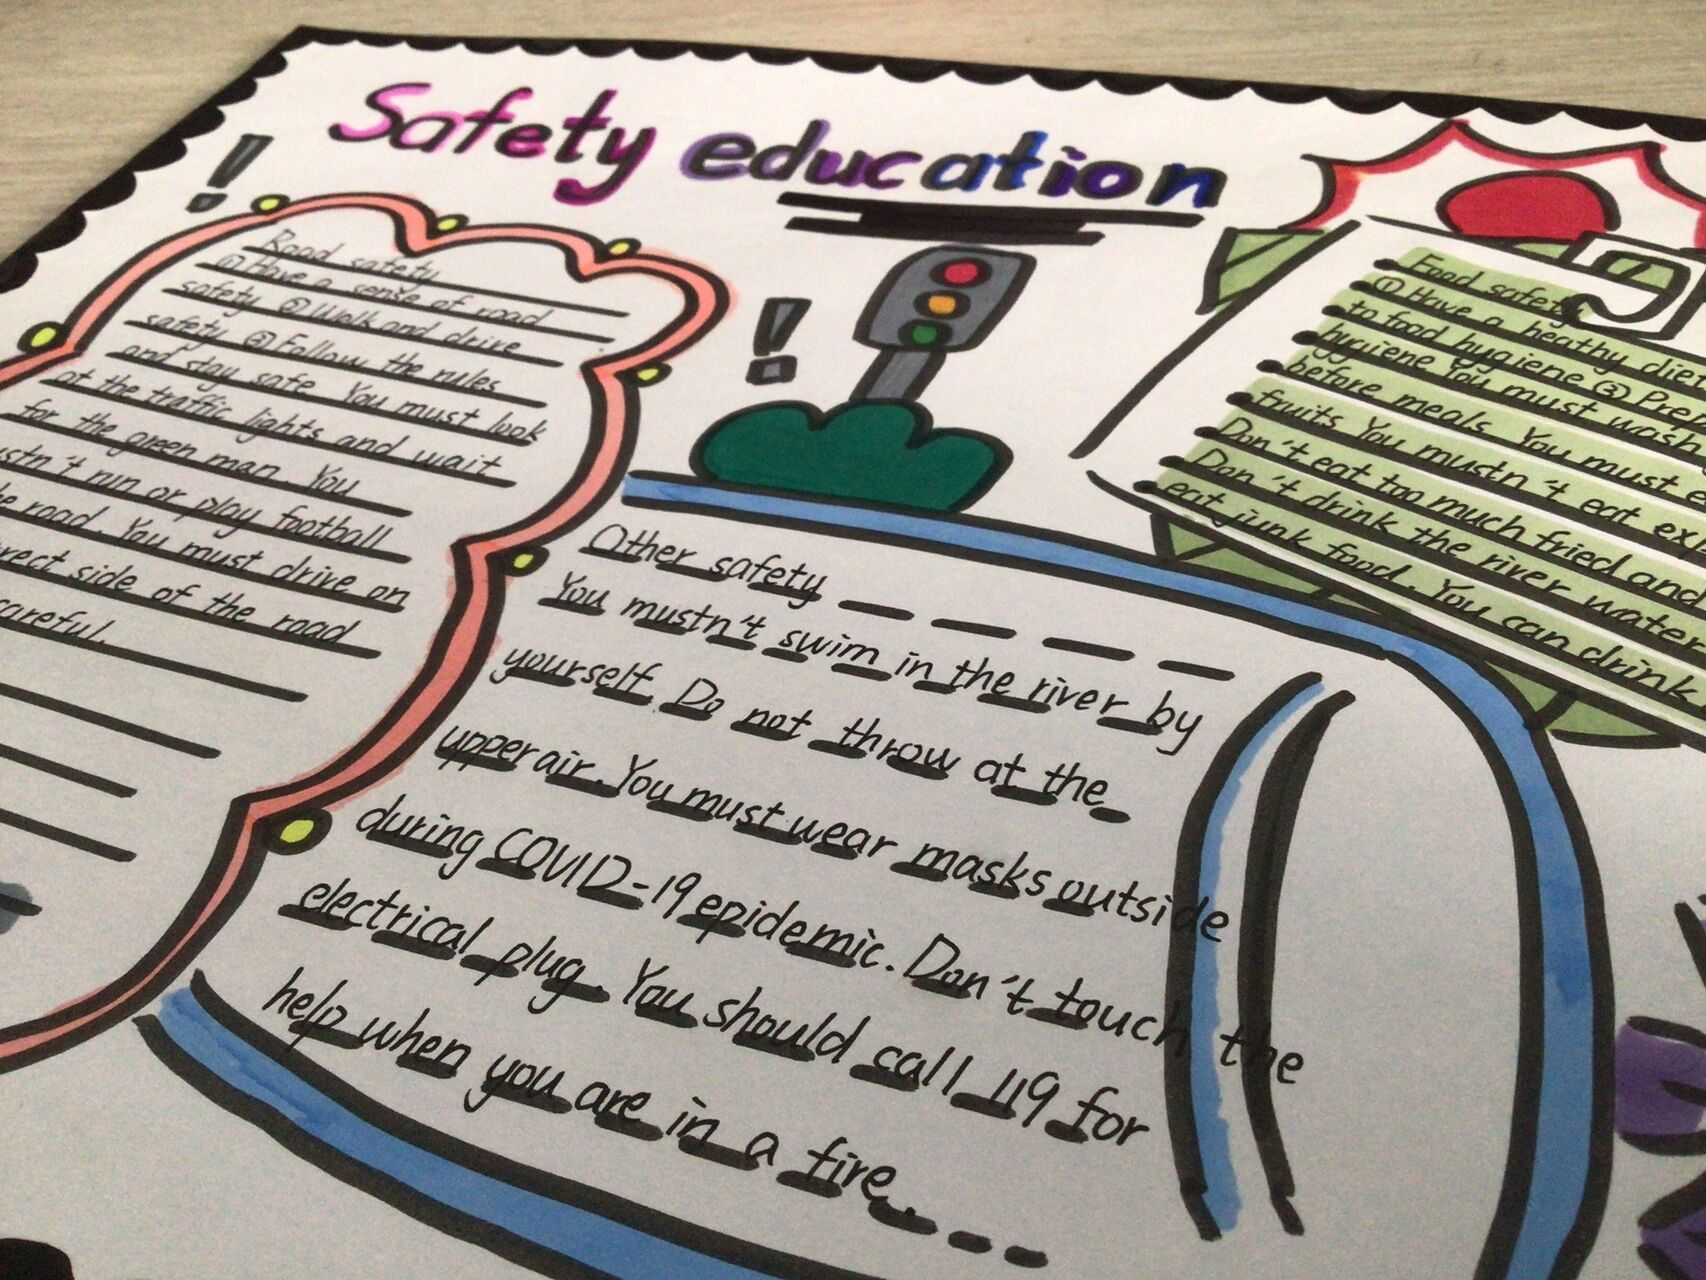 Safety education
Road safety
①Have a sense of road
safety ②Walk and drive
safety ③Follow the rules
and stay safe You must look
at the traffic lights and wait
for the green man. You
run or play football
road. You must drive on
side of the road
careful.
Other safety
You mustn't swim in the river by
yourself. Do not throw at the
upper air. You must wear masks outside
during COVID-19 epidemic. Don't touch the
electrical plug. You should call 119 for
help when you are in a fire.
Food safety
①Have a heathy diet
to food hygiene ②
hygiene You must wash
before meals. You must
fruits You mustn't eat
Don't eat too much fried and
Don't drink the river water
eat junk food. You can drink